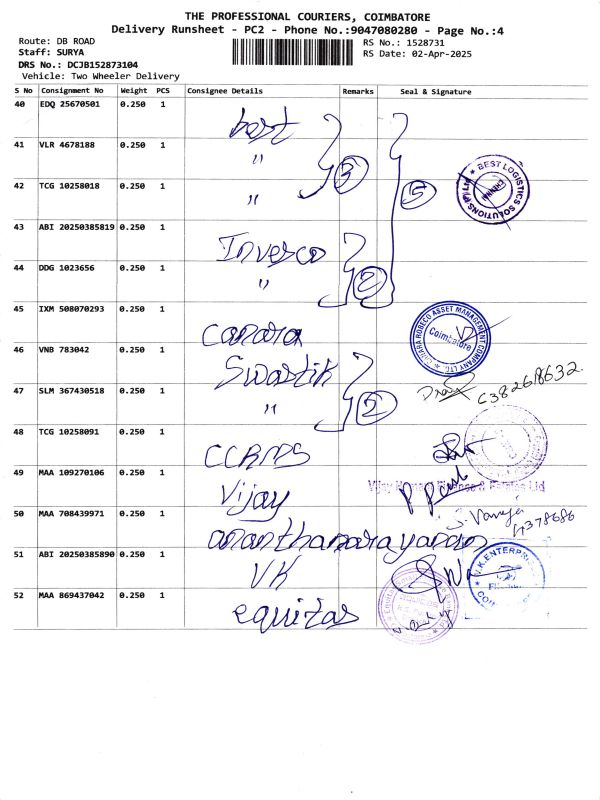 THE PROFESSIONAL COURIERS, COIMBATORE
Delivery Runsheet - PC2 - Phone No.:9047080280 - Page No.:4
Route: DB ROAD
RS No.: 1528731
Staff: SURYA
RS Date: 02-Apr-2025
DRS No.: DCJB152873104
Vehicle: Two Wheeler Delivery
S No Consignment No Weight PCS Consignee Details Remarks Seal & Signature
40 EDQ 25670501 0.250 1 best
41 VLR 4678188 0.250 1 " 3
42 TCG 10258018 0.250 1 " 5
BEST LOGISTICS SOLUTIONS (P) Ltd
43 ABI 20250385819 0.250 1 Invesco
44 DDG 1023656 0.250 1 " 2
45 IXM 508070293 0.250 1 canara
CANARA ROBECO ASSET MANAGEMENT COMPANY LTD. Coimbatore
46 VNB 783042 0.250 1 Swastik
47 SLM 367430518 0.250 1 " 2
6382618632
48 TCG 10258091 0.250 1 CCRMS
49 MAA 109270106 0.250 1 Vijay
50 MAA 708439971 0.250 1 ananthanarayanan
51 ABI 20250385890 0.250 1 VK
V.K.ENTERPRI
52 MAA 869437042 0.250 1 equitas